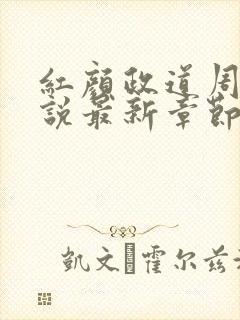 紅顏政道周
說最新章節
凱文 霍尔兹